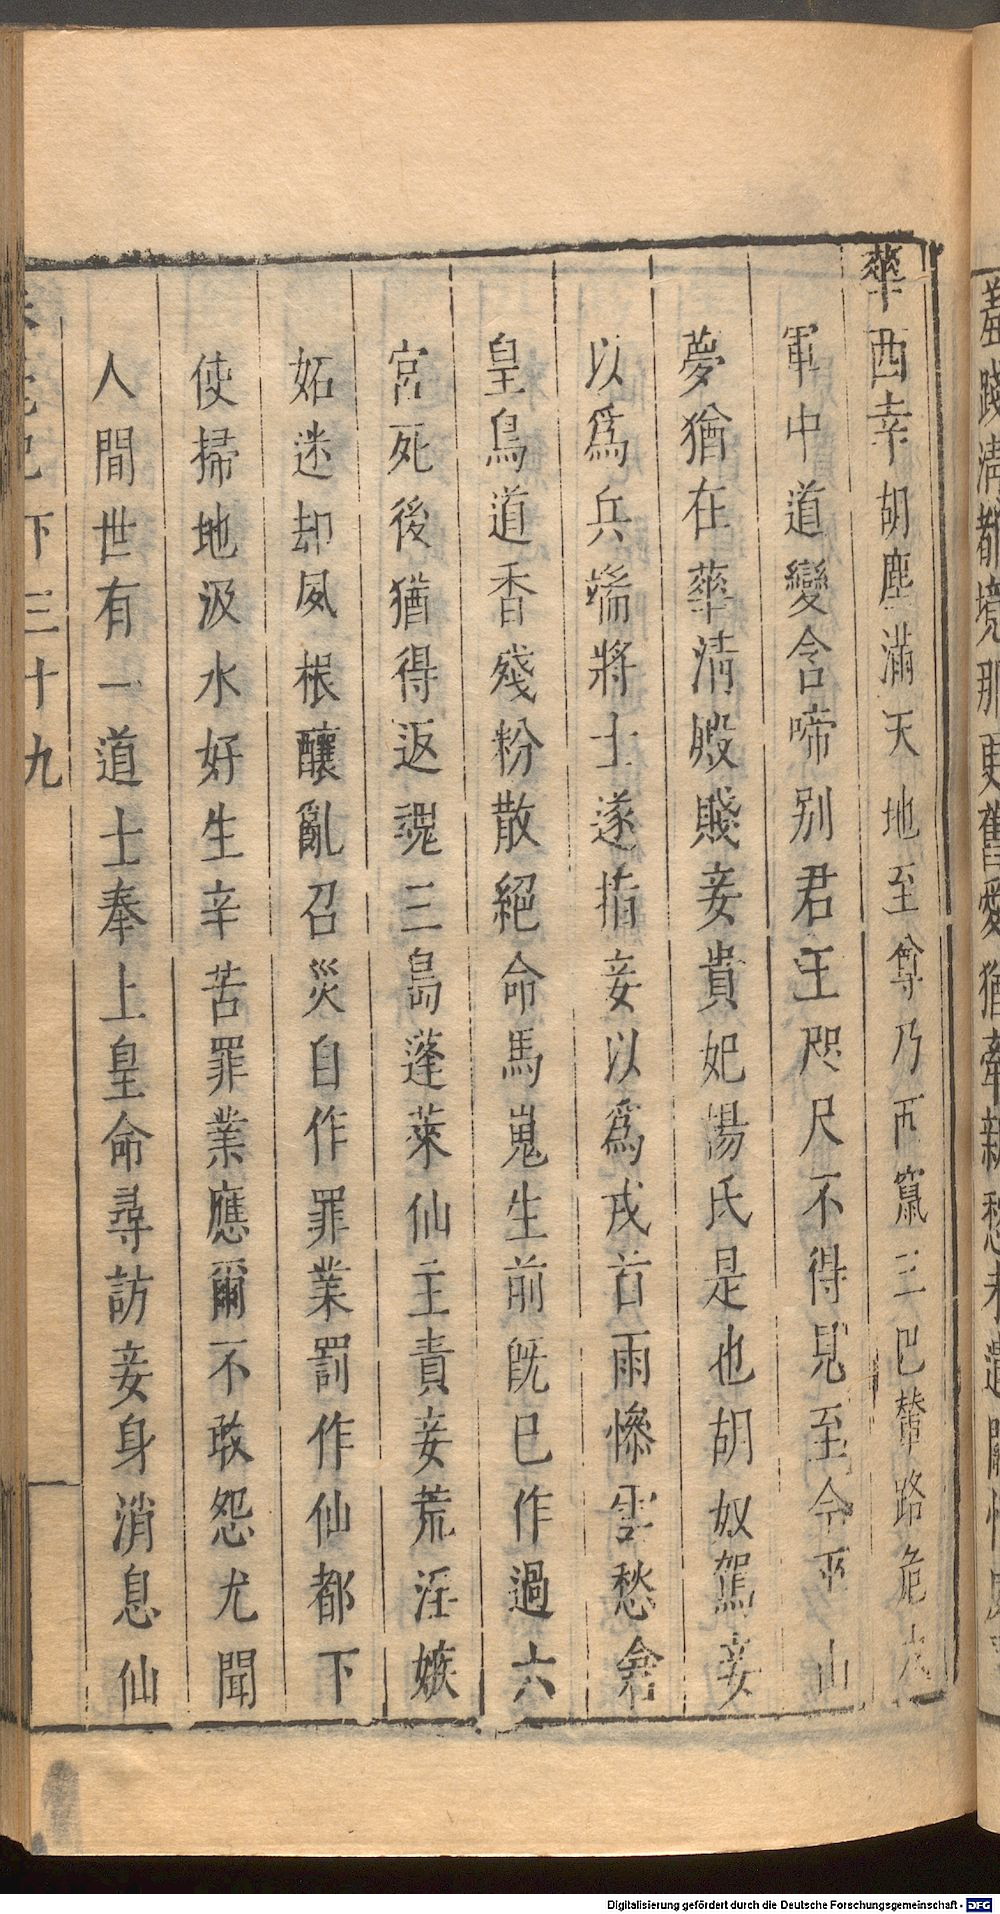 羞踐淸都境那更舊愛猶牽新愁未遣關情
華西幸胡塵滿天地至尊乃西竄三巴輦路危六
軍中道變含啼別君王咫尺不得見至今巫山
夢猶在華淸殿賤妾貴妃湯氏是也胡奴駕妾
以爲兵端將士遂指妾以爲戎首雨慘雲愁倉
皇鳥道香殘粉散絕命馬嵬生前旣已作過六
宮死後猶得返魂三島蓬萊仙主責妾荒淫嫉
妬迷却夙根釀亂召災自作罪業罰作仙都下
使掃地汲水好生辛苦罪業應爾不敢怨尤聞
人間世有一道士奉上皇命尋訪妾身消息仙
記 下 三十九
Digitalisierung gefördert durch die Deutsche Forschungsgemeinschaft - DFG